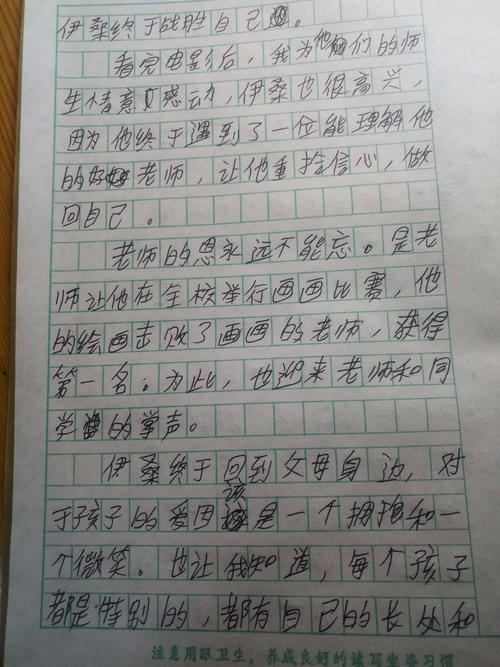 伊桑终于战胜自己。
看完电影后，我为他们的师
生情意感动，伊桑也很高兴，
因为他终于遇到了一位能理解他
的好老师，让他重拾信心，做
回自己。
老师的恩永远不能忘。是老
师让他在全校举行画画比赛，他
的绘画击败了画画的老师，获得
第一名。为此，也迎来老师和同
学的掌声。
伊桑终于回到父母身边，对
于孩子的爱因该是一个拥抱和一
个微笑。也让我知道，每个孩子
都是特别的，都有自己的长处和
注意用眼卫生，养成良好的读写坐姿习惯